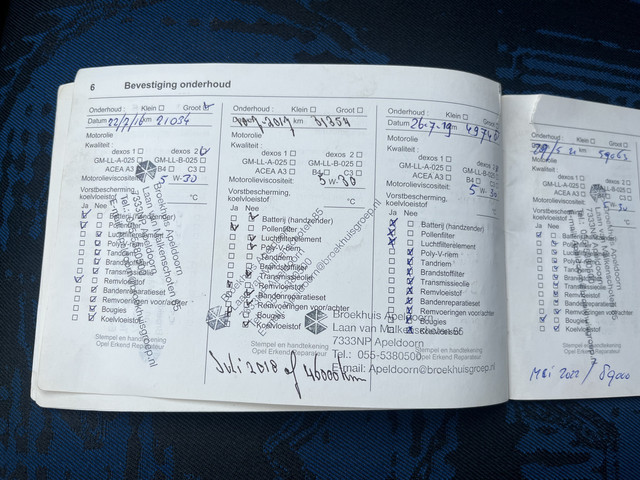 6 Bevestiging onderhoud
Onderhoud : Klein Groot
Datum 22/2/16 km 21034
Motorolie
Kwaliteit :
dexos 1 dexos 2
GM-LL-A-025 GM-LL-B-025
ACEA A3 B4 C3
Motorolieviscositeit: 5 W- 30
Vorstbescherming,
koelvloeistof °C
Ja Nee
Batterij (handzender)
Pollenfilter
Luchtfilterelement
Poly-V-riem
Tandriem
Brandstoffilter
Transmissieolie
Remvloeistof
Bandenreparatieset
Remvoeringen voor/achter
Bougies
Koelvloeistof
Stempel en handtekening
Opel Erkend Reparateur
Onderhoud : Klein Groot
Datum 2017 km 31354
Motorolie
Kwaliteit :
dexos 1 dexos 2
GM-LL-A-025 GM-LL-B-025
ACEA A3 B4 C3
Motorolieviscositeit: 5 W- 30
Vorstbescherming,
koelvloeistof °C
Ja Nee
Batterij (handzender)
Pollenfilter
Luchtfilterelement
Poly-V-riem
Tandriem
Brandstoffilter
Transmissieolie
Remvloeistof
Bandenreparatieset
Remvoeringen voor/achter
Bougies
Koelvloeistof
Stempel en handtekening
Opel Erkend Reparateur
Juli 2018 of 40000 km
Onderhoud : Klein Groot
Datum 26-7-19 km 4974
Motorolie
Kwaliteit :
dexos 1 dexos 2
GM-LL-A-025 GM-LL-B-025
ACEA A3 B4 C3
Motorolieviscositeit: 5 W- 30
Vorstbescherming,
koelvloeistof °C
Ja Nee
Batterij (handzender)
Pollenfilter
Luchtfilterelement
Poly-V-riem
Tandriem
Brandstoffilter
Transmissieolie
Remvloeistof
Bandenreparatieset
Remvoeringen voor/achter
Bougies
Koelvloeistof
Broekhuis Apeldoorn
Laan van Malkenschoten 65
7333NP Apeldoorn
Tel.: 055-5380500
E-mail: Apeldoorn@broekhuisgroep.nl
Stempel en handtekening
Opel Erkend Reparateur
Onderhoud : Klein Groot
Datum km 59063
Motorolie
Kwaliteit :
dexos 1 dexos 2
GM-LL-A-025 GM-LL-B-025
ACEA A3 B4 C3
Motorolieviscositeit:
Vorstbescherming,
koelvloeistof °C
Ja Nee
Stempel en handtekening
Opel Erkend Reparateur
Mei 2022 / 89000